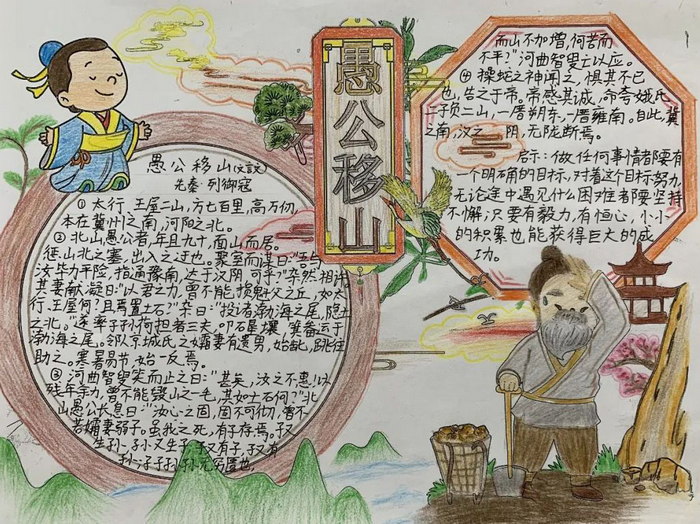 愚公移山
愚公移山(文言文)
先秦 列御寇
① 太行、王屋二山,方七百里,高万仞,
本在冀州之南,河阳之北。
② 北山愚公者,年且九十,面山而居。
惩山北之塞,出入之迂也。聚室而谋曰:"吾与
汝毕力平险,指通豫南,达于汉阴,可乎?"杂然相许。
其妻献疑曰:"以君之力,曾不能损魁父之丘,如太
行、王屋何?且焉置土石?"杂曰:"投诸渤海之尾,隐土
之北。"遂率子孙荷担者三夫,叩石垦壤,箕畚运于
渤海之尾。邻人京城氏之孀妻有遗男,始龀,跳往
助之。寒暑易节,始一反焉。
③ 河曲智叟笑而止之曰:"甚矣,汝之不惠!以
残年余力,曾不能毁山之一毛,其如土石何?"北
山愚公长息曰:"汝心之固,固不可彻,曾不
若孀妻弱子。虽我之死,有子存焉。子又
生孙,孙又生子;子又有子,子又有
孙;子子孙孙无穷匮也,
而山不加增,何苦而
不平?"河曲智叟亡以应。
④ 操蛇之神闻之,惧其不已
也,告之于帝。帝感其诚,命夸娥氏
二子负二山,一厝朔东,一厝雍南。自此,冀
之南,汉之阴,无陇断焉。
启示:做任何事情都要有
一个明确的目标,对着这个目标努力,
无论途中遇见什么困难都要坚持
不懈;只要有毅力,有恒心,小小
的积累也能获得巨大的成
功。